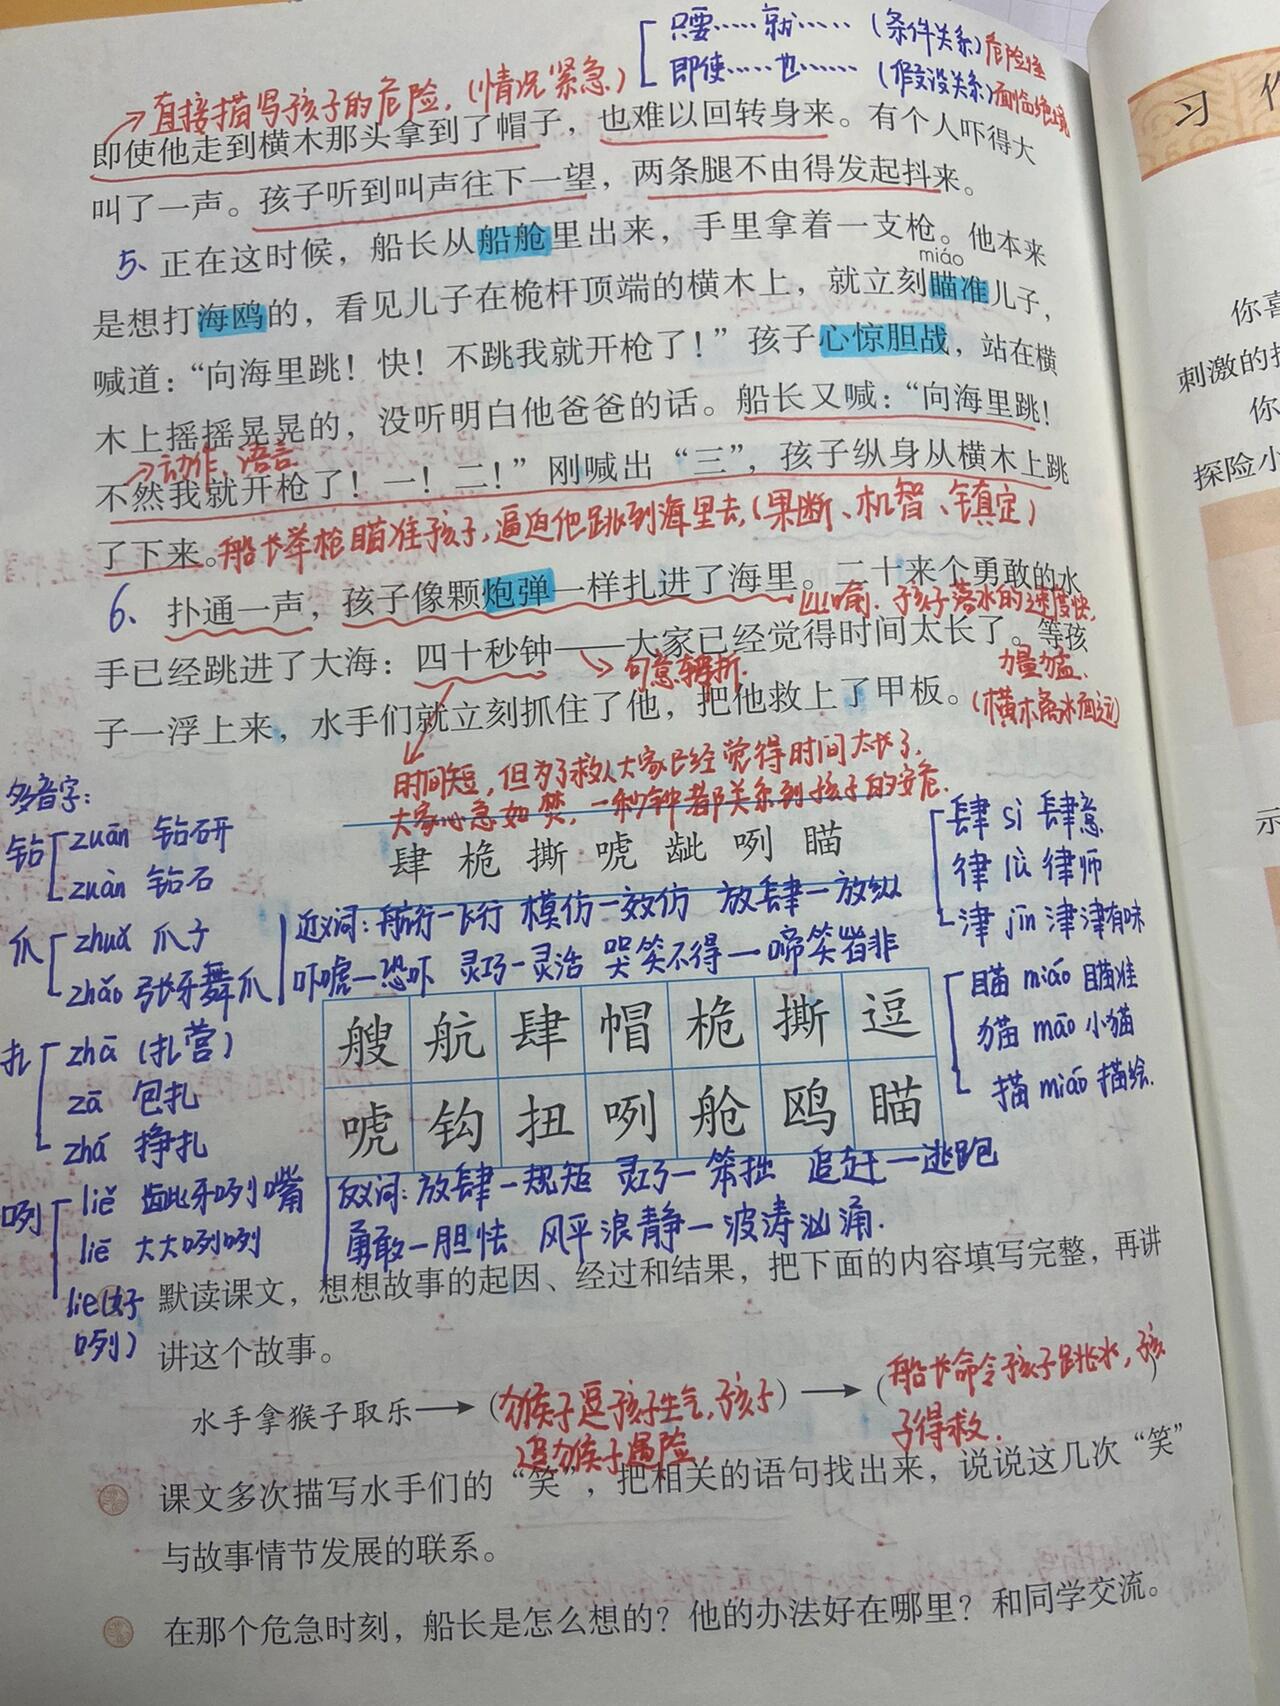 只要……就……（条件关系）危险性
即使……也……（假设关系）面临绝境
直接描写孩子的危险，（情况紧急）
即使他走到横木那头拿到了帽子，也难以回转身来。有个人吓得大
叫了一声。孩子听到叫声往下一望，两条腿不由得发起抖来。
5、正在这时候，船长从船舱里出来，手里拿着一支枪。他本来
miáo
是想打海鸥的，看见儿子在桅杆顶端的横木上，就立刻瞄准儿子，
喊道：“向海里跳！快！不跳我就开枪了！”孩子心惊胆战，站在横
木上摇摇晃晃的，没听明白他爸爸的话。船长又喊：“向海里跳！
动作、语言
不然我就开枪了！一！二！”刚喊出“三”，孩子纵身从横木上跳
了下来。船长举枪瞄准孩子，逼迫他跳到海里去，（果断、机智、镇定）
6、扑通一声，孩子像颗炮弹一样扎进了海里。二十来个勇敢的水
比喻．孩子落水的速度快，
手已经跳进了大海：四十秒钟——大家已经觉得时间太长了。等孩
句意转折．
力量猛．
子一浮上来，水手们就立刻抓住了他，把他救上了甲板。（横木离水面远）
时间短，但为了救人大家已经觉得时间太长了．
大家心急如焚，一秒钟都关系到孩子的安危．
多音字：
钻 zuān 钻研
zuàn 钻石
爪 zhuǎ 爪子
zhǎo 张牙舞爪
扎 zhā（扎营）
zā 包扎
zhá 挣扎
咧 liě 龇牙咧嘴
liē 大大咧咧
lie（好咧）
肆 桅 撕 唬 龇 咧 瞄
肆 sì 肆意
律 lǜ 律师
津 jīn 津津有味
近义词：航行—飞行 模仿—效仿 放肆—放纵
吓唬—恐吓 灵巧—灵活 哭笑不得—啼笑皆非
瞄 miáo 瞄准
猫 māo 小猫
描 miáo 描绘．
艘 航 肆 帽 桅 撕 逗
唬 钩 扭 咧 舱 鸥 瞄
反义词：放肆—规矩 灵巧—笨拙 追赶—逃跑
勇敢—胆怯 风平浪静—波涛汹涌．
默读课文，想想故事的起因、经过和结果，把下面的内容填写完整，再讲
讲这个故事。
水手拿猴子取乐→（猴子逗孩子生气，孩子追猴子遇险）→（船长命令孩子跳水，孩子得救．）
课文多次描写水手们的“笑”，把相关的语句找出来，说说这几次“笑”
与故事情节发展的联系。
在那个危急时刻，船长是怎么想的？他的办法好在哪里？和同学交流。
习 作
你喜
刺激的探
你
探险小
示